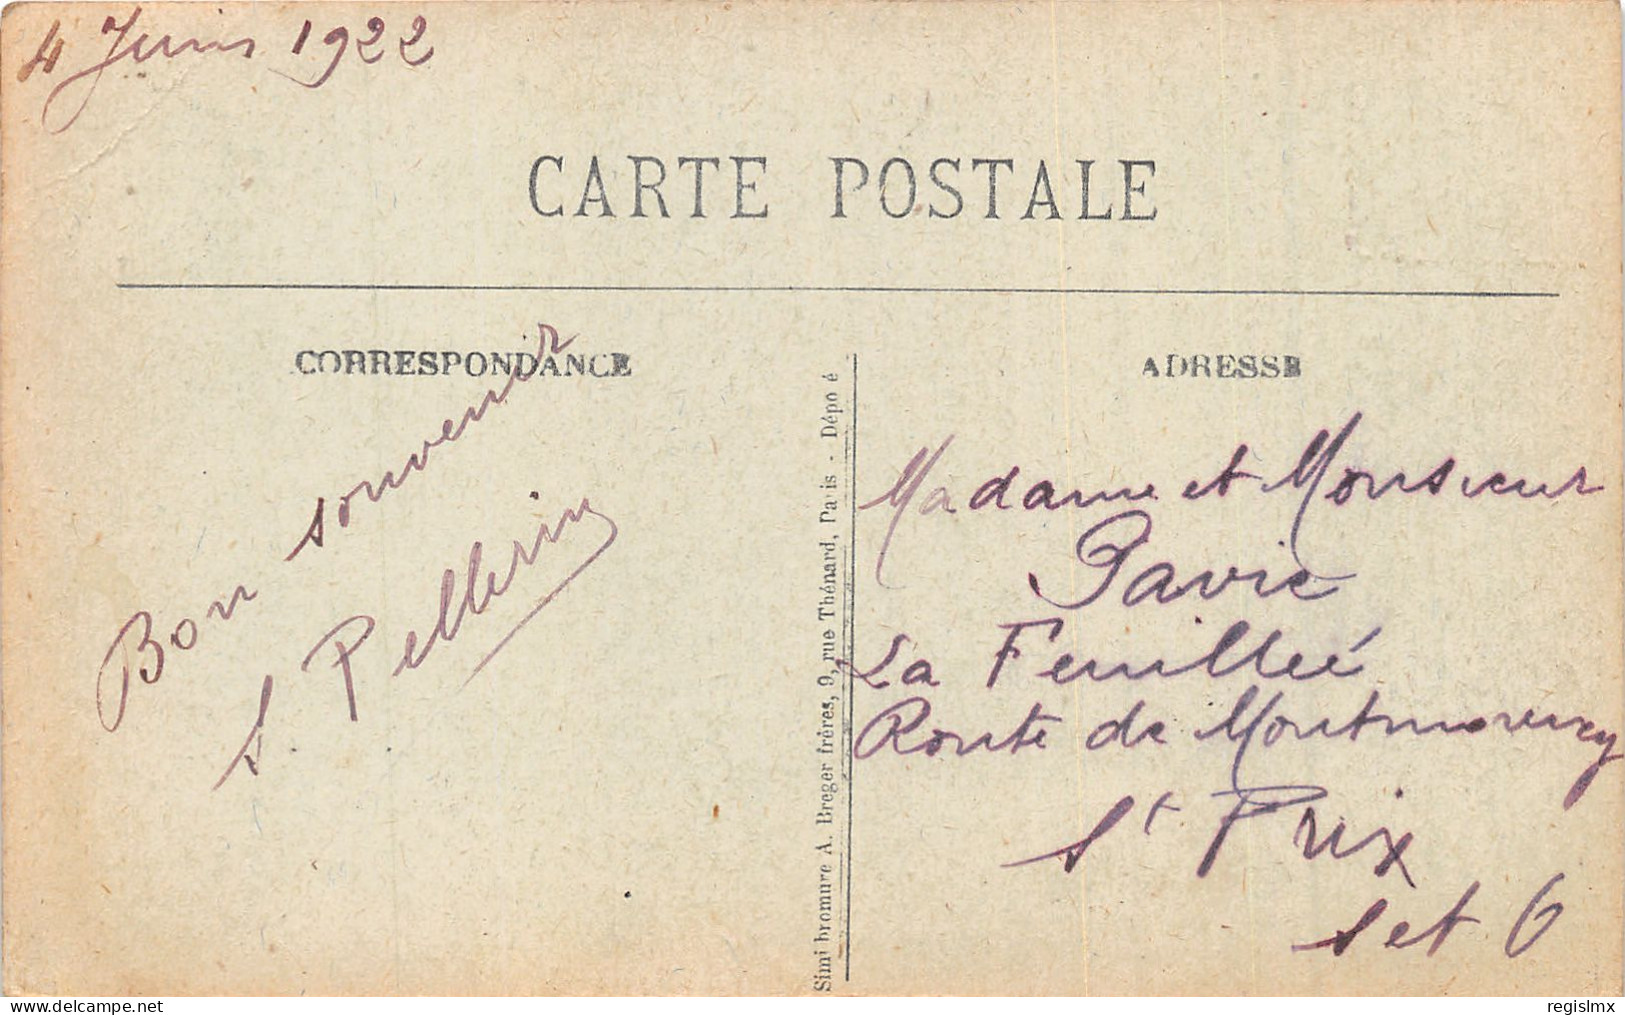 4 Juin 1922
CARTE POSTALE
CORRESPONDANCE
Bon souvenir
S. Pellerin
Simi bromure A. Breger frères, 9, rue Thénard, Paris - Dépo é
ADRESSE
Madame et Monsieur
Pavie
La Feuilleé
Route de Montmorency
St Prix
S et O
www.delcampe.net
regislmx